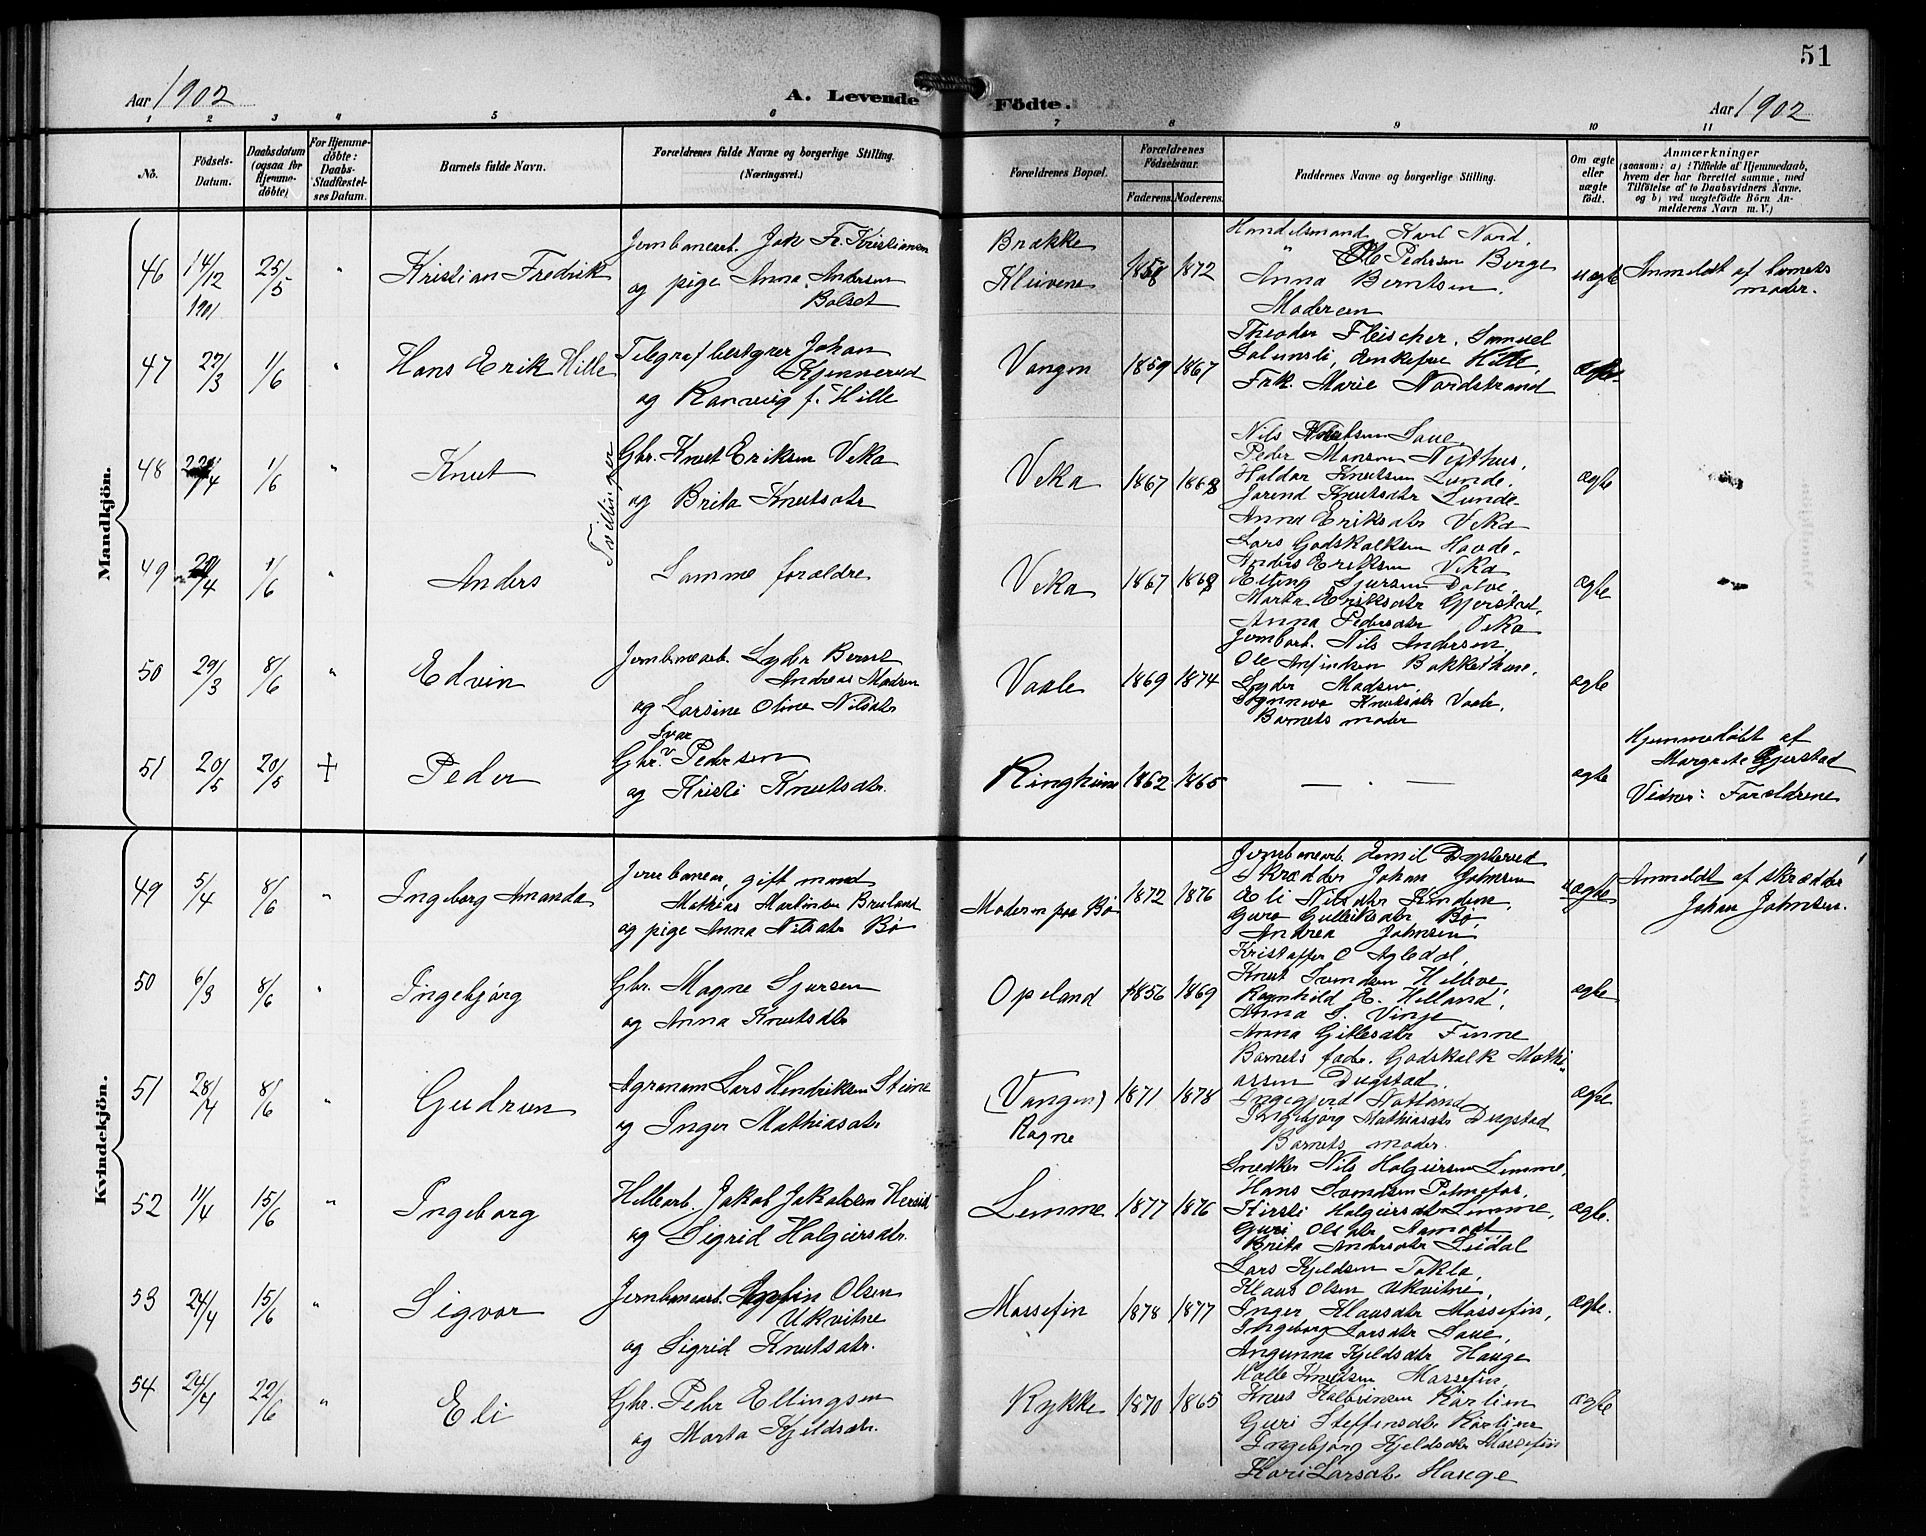 51
Aar 1902
A. Levende Födte.
Aar 1902
1 2 3 4 5 6 7 8 9 10 11
No.
Födsels-Datum.
Daabsdatum (ogsaa for Hjemmedöbte)
For Hjemmedöbte: Daabs-Stadfæstelses Datum.
Barnets fulde Navn.
Forældrenes fulde Navne og borgerlige Stilling. (Næringsvei.)
Forældrenes Bopæl.
Forældrenes Födselsaar.
Faderens. Moderens.
Faddernes Navne og borgerlige Stilling.
Om ægte eller uægte födt.
Anmærkninger
(saasom: a) i Tilfælde af Hjemmedaab, hvem der har forrettet samme, med Tilföielse af to Daabsvidners Navne. og b) ved uægtefödte Börn Anmelderens Navn m. V.)
Mandkjön.
46 14/12 1901 25/5 " Kristian Fredrik
Jernbanearb. Fr. Kristiansen
og pige Anna Andersen
Brække
Kleivene
1858 1872
Handelsmand Karl Nord,
" Ole Pedersen Berge
Anna Berntsen.
Moderen
uægte
Anmeldt af barnets
moder.
47 27/3 1/6 " Hans Erik Hille
Telegrafbestyrer Johan
og Ranveig f. Hille
Vangen 1859 1867
Theodor Fleischer, Samuel
enkefrue Hille,
Frk. Marie Nordstrand
ægte
Tvillinger
48 1/6 " Knut
Gbr. Knut Eriksen Veka
og Brita Knutsdtr
Veka 1867 1868
Nils Saue,
Peder Monsen
Haldor Knutsen Lunde.
Jorend Knutsdtr Lunde
Anna Eriksdtr Veka
ægte
49 1/6 " Anders
Samme forældre
Veka 1867 1868
Lars Godskalksen Haade.
Anders Eriksen Veka
Sjursen Dolve,
Marta Eriksdtr Gjerstad,
Anna Pedersdtr Veka
ægte
50 29/3 8/6 " Edvin
Jernbanearb. Lyder Bernt
Andreas Madsen
og Larsine Oline Nilsdtr
Vaale 1869 1874
Jernbarb. Nils Andersen,
Ole Bakkethun,
Lyder Madsen,
Knutsdtr Vaale,
Barnets moder
ægte
51 20/5 20/5 + Peder
Ivar
Gbr. v Pedersen
og Kristi Knutsdtr.
Ringheim 1862 1865
— . —
ægte
Hjemmedöbt af
Margrete Gjerstad
Vidner: Forældrene
Kvindekjön.
49 5/4 8/6 " Ingeborg Amanda
gift mand
Mathias Martinsen
og pige Anna Nilsdtr Bø
Moderen paa Bø 1872 1876
Jernbanearb. Emil
Skrædder Johan Johnsen
Eli Nilsdtr
Guro Gulleiksdtr Bø,
Andrea Johnsen
uægte
Anmeldt af skrædder
Johan Johnsen.
50 6/3 8/6 " Ingebjørg
Gbr. Magne Sjursen
og Anna Knutsdtr
Opeland 1856 1869
Kristoffer O
Knut Svendsen Helleve,
Ragnhild E. Helland,
Anna S. Vinje
Anna Gillesdtr Finne
ægte
51 28/4 8/6 " Gudrun
Agronom Lars Hendriksen Steine
og Inger Mathiasdtr
(Vangen)
Rogne
1871 1878
Barnets fader. Godskalk Mathi-
assen Dugstad.
Ingegjerd
Ingebjørg Mathiasdtr Dugstad
Barnets moder.
ægte
52 11/4 15/6 " Ingeborg
Jakob Jakobsen
og Sigrid Holgiersdtr.
Lemme 1877 1876
Snedker Nils Holgiersen Lemme,
Hans Svendsen Palmefos,
Kirsti Holgiersdtr Lemme,
Guri Olsdtr
Brita Andersdtr
ægte.
53 24/4 15/6 " Sigvor
Jernbanearb. Olsen
Ukvitne
og Sigrid Knutsdtr.
Massefin 1878 1877
Lars Kjeldsen Takla,
Klaus Olsen Ukvitne,
Inger Klausdtr Massefin,
Ingeborg Larsdtr Saue,
Angunna Kjeldsdtr Hauge
ægte.
54 24/4 22/6 " Eli
Gbr. Peder Ellingsen
og Marta Kjeldsdtr.
Rykke 1870 1865
Kolle Knutsen Massefin,
Knut Rørlien
Guri Steffensdtr Rørlien
Ingebjørg Kjeldsdtr Massefin
Kari Larsdtr. Hauge
ægte